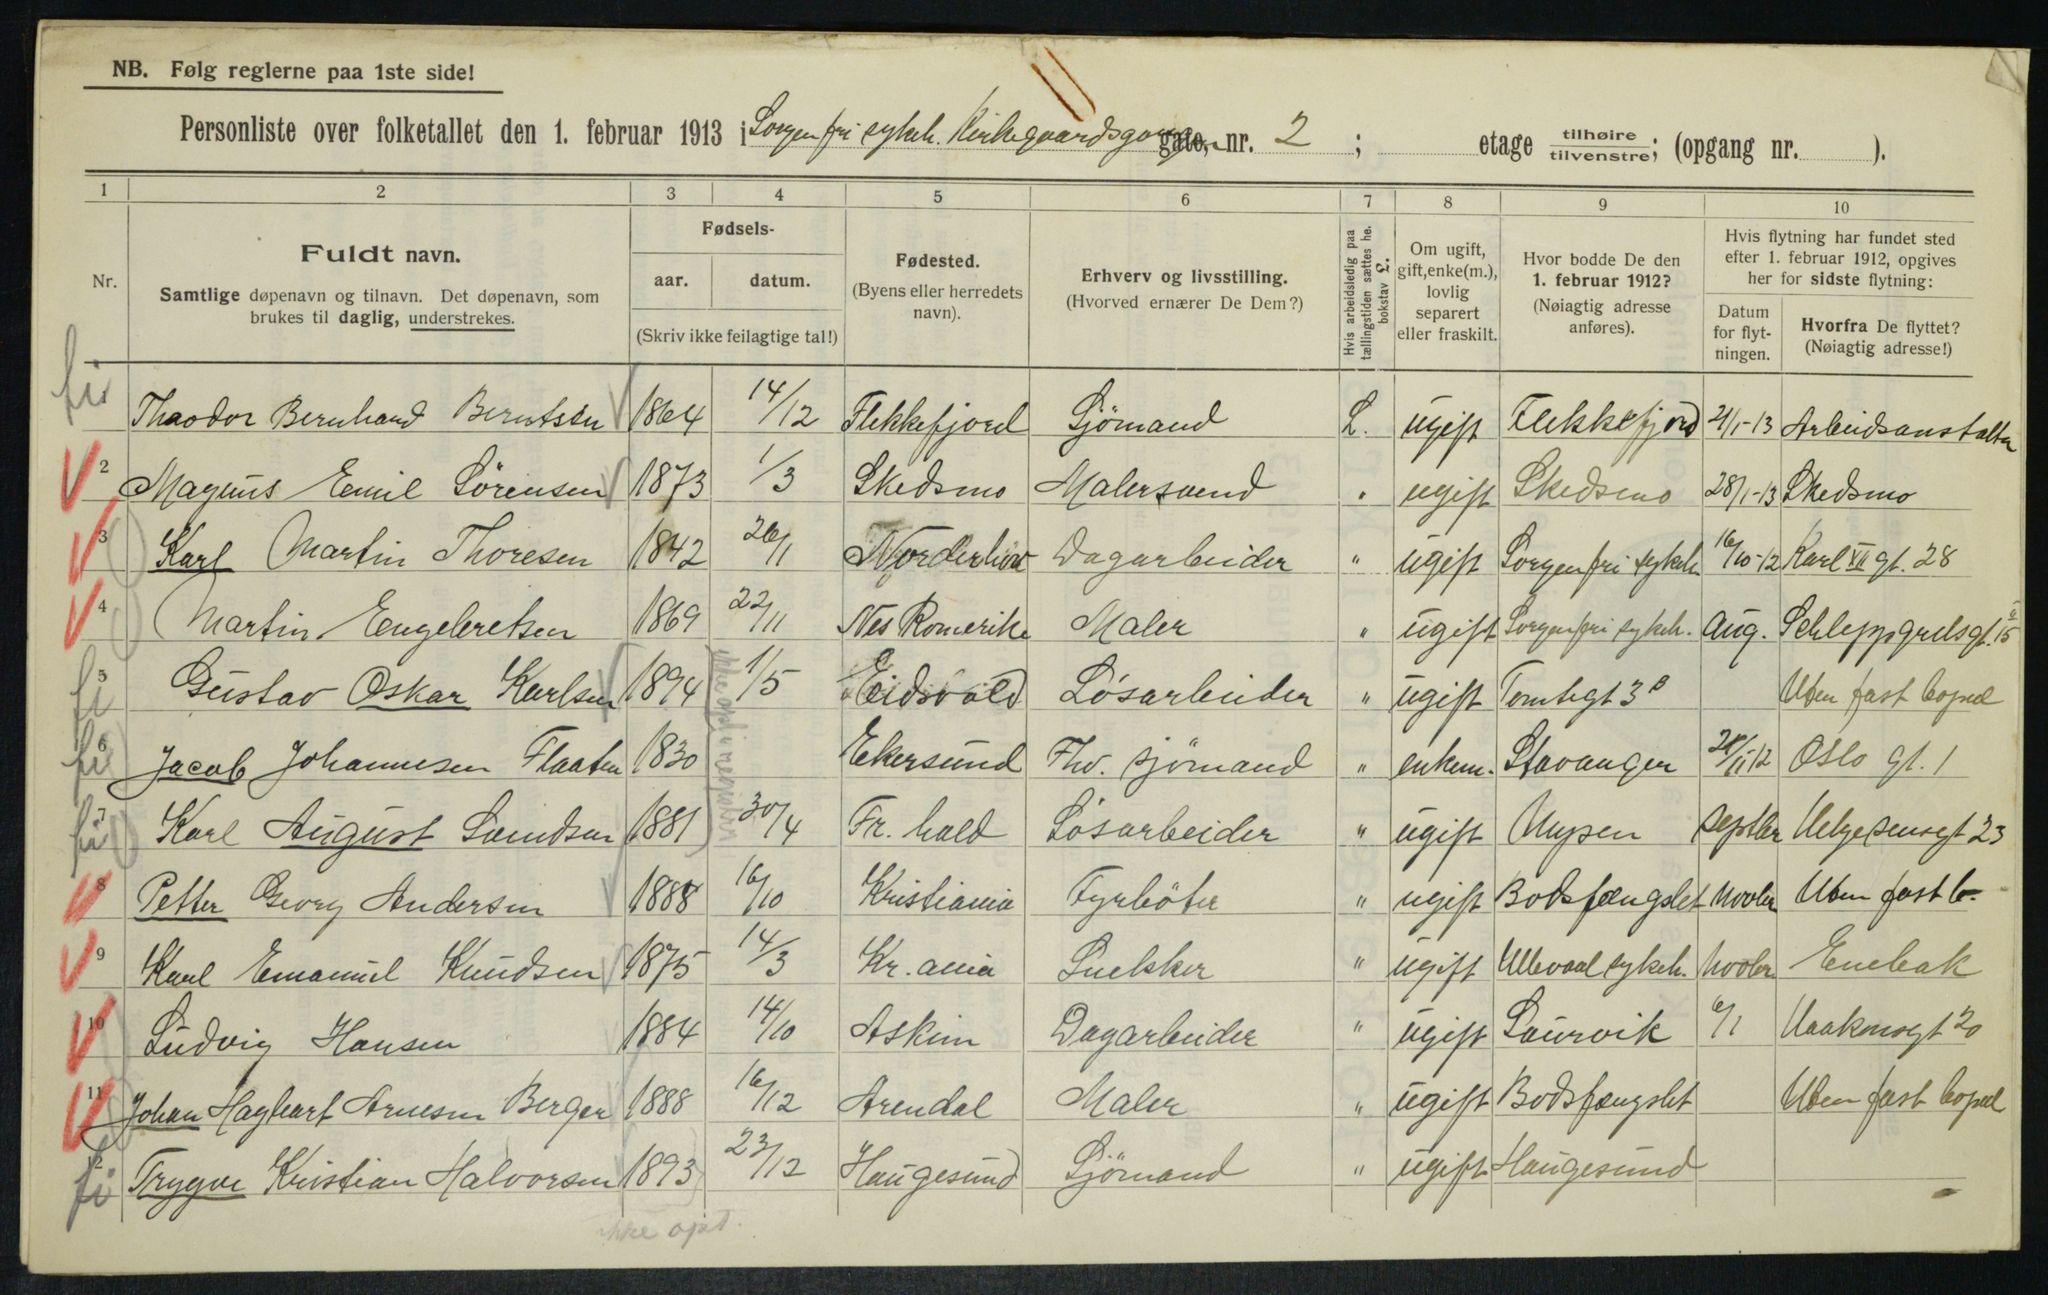 NB. Følg reglerne paa 1ste side!
Personliste over folketallet den 1. februar 1913 i Sorgenfri sykeh. Kirkegaardsgaten gate, nr. 2 ; etage tilhøire tilvenstre; (opgang nr. ).
1 2 3 4 5 6 7 8 9 10
Nr.
Fuldt navn.
Samtlige døpenavn og tilnavn. Det døpenavn, som
brukes til daglig, understrekes.
Fødsels-
aar. datum.
(Skriv ikke feilagtige tal!)
Fødested.
(Byens eller herredets
navn).
Erhverv og livsstilling.
(Hvorved ernærer De Dem?)
Hvis arbeidsledig paa
tællingstiden sættes he.
bokstav £.
Om ugift,
gift, enke(m.),
lovlig
separert
eller fraskilt.
Hvor bodde De den
1. februar 1912?
(Nøiagtig adresse
anføres).
Hvis flytning har fundet sted
efter 1. februar 1912, opgives
her for sidste flytning:
Datum
for flyt-
ningen.
Hvorfra De flyttet?
(Nøiagtig adresse!)
fi Thaodor Bernhand Berntsen 1864 14/12 Flekkefjord Sjömand L. ugift Flekkefjord 21/1-13 Arbeidsanstalten
2 Magnus Emil Sörensen 1873 1/3 Skedsmo Malersvend " ugift Skedsmo 28/1-13 Skedsmo
3 Karl Martin Thoresen 1842 26/1 Norderhov Dagarbeider " ugift Sorgenfri sykeh. 16/10-12 Karl XII gt. 28
4 Martin Engebretsen 1869 22/11 Nes Romerike Maler " ugift Sorgenfri sykeh. Aug. Schleppgrelsgt. 15
fi 5 Gustav Oskar Karlsen 1894 1/5 Eidsvold Lösarbeider " ugift Tomtegt 3B Uten fast bopæl
fi 6 Jacob Johannesen Flaaten 1830 Ekersund Fhv. sjömand " enkem. Stavanger 28/11-12 Oslo gt. 1
fi 7 Karl August Sundsen 1881 30/4 Fr. hald Lösarbeider " ugift Mysen septbr Helgesensgt 23
8 Petter Georg Andersen 1888 16/10 Kristiania Fyrböter " ugift Bodsfængslet Novbr Uten fast b-
9 Karl Emanuel Knudsen 1875 14/3 Kr.ania Snekker " ugift Ullevaal sykeh. Novbr Enebak
10 Ludvig Hansen 1884 14/10 Askim Dagarbeider " ugift Laurvik 6/1 Haakonsgt 20
11 Johan Hagbart Arnesen Berger 1888 16/12 Arendal Maler " ugift Bodsfængslet Uten fast bopæl
fi 12 Trygve Kristian Halvorsen 1893 23/12 Haugesund Sjömand " ugift Haugesund
ikke opt.